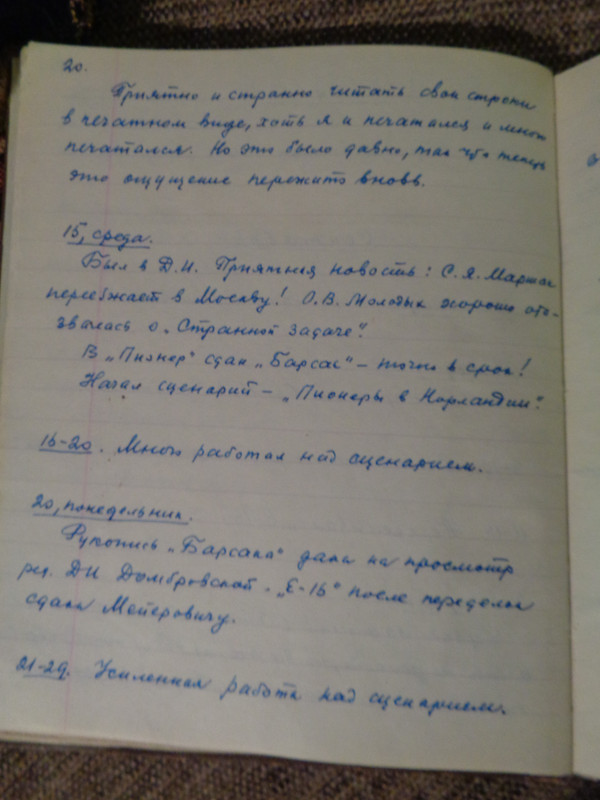 20.
Приятно и странно читать свои строки
в печатном виде, хоть я и печатался и много
печатался. Но это было давно, так что теперь
это ощущение пережито вновь.
15, среда.
Был в Д.И. Приятная новость: С.Я. Маршак
переезжает в Москву! О.В. Молодык хорошо ото-
звалась о „Странной задаче“.
В „Пионер“ сдан „Барсак“ – точно в срок!
Начал сценарий – „Пионеры в Норландии“.
16-20. Много работал над сценарием.
20, понедельник.
Рукопись „Барсака“ дана на просмотр
ред. ДИ Домбровской. „Е-16“ после переделок
сдана Мейеровичу.
21-29. Усиленная работа над сценарием.